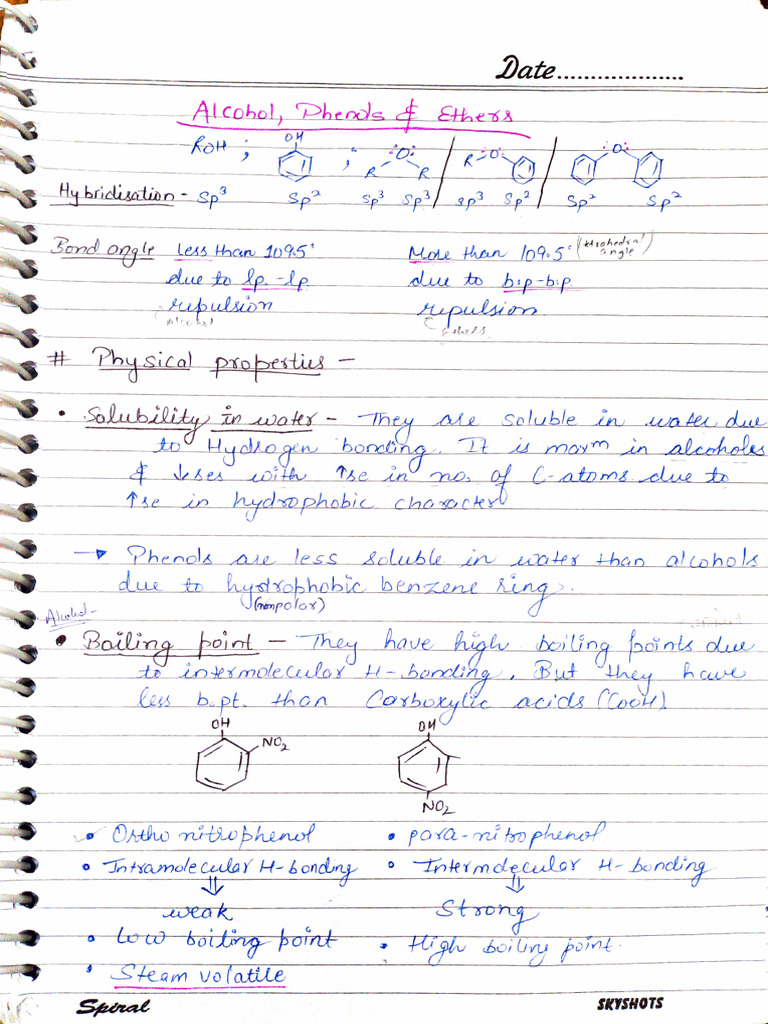 Date...................
Alcohol, Phenols & Ethers
ROH ; OH ; R O R / R O / O
Hybridisation - Sp³ Sp² Sp³ Sp³ sp³ Sp² Sp² Sp²
Bond angle less than 109.5° More than 109.5° (tetrahedral angle)
due to lp.-lp. due to b.p-b.p.
repulsion repulsion
(alcohol) (ethers)
# Physical properties -
• Solubility in water - They are soluble in water due
to Hydrogen bonding. It is maxm in alcohols
& ↓ses with ↑se in no. of C-atoms due to
↑se in hydrophobic character
→ Phenols are less soluble in water than alcohols
due to hydrophobic benzene ring.
(nonpolar)
Alcohol-
• Boiling point - They have high boiling points due
to intermolecular H-bonding. But they have
less b.pt. than Carboxylic acids (COOH)
OH NO2 OH
NO2
• Ortho nitrophenol • para-nitrophenol
• Intramolecular H-bonding • Intermolecular H-bonding
⇓ ⇓
weak Strong
• Low boiling point • High boiling point.
• Steam volatile
Spiral SKYSHOTS